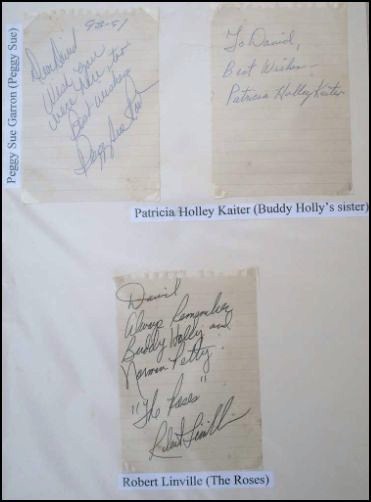 Peggy Sue Garron (Peggy Sue)
9-28-91
Dear David
Wish you
were here too
Best wishes
Peggy Sue
To David,
Best Wishes -
Patricia Holley Kaiter
Patricia Holley Kaiter (Buddy Holly's sister)
David
Always Remember
Buddy Holly and
Norman Petty.
"The Roses"
Robert Linville
Robert Linville (The Roses)